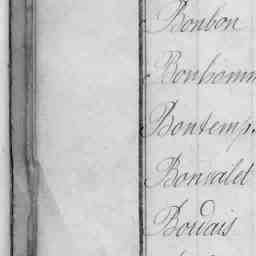 Bonbon
Bonhomm
Bontemp
Bonvalet
Bordais